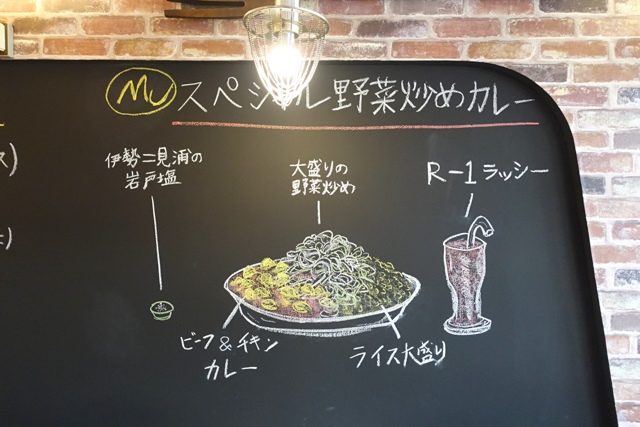 MU スペシャル野菜炒めカレー
伊勢二見浦の
岩戸塩
大盛りの
野菜炒め
R-1 ラッシー
ビーフ&チキン
カレー
ライス大盛り